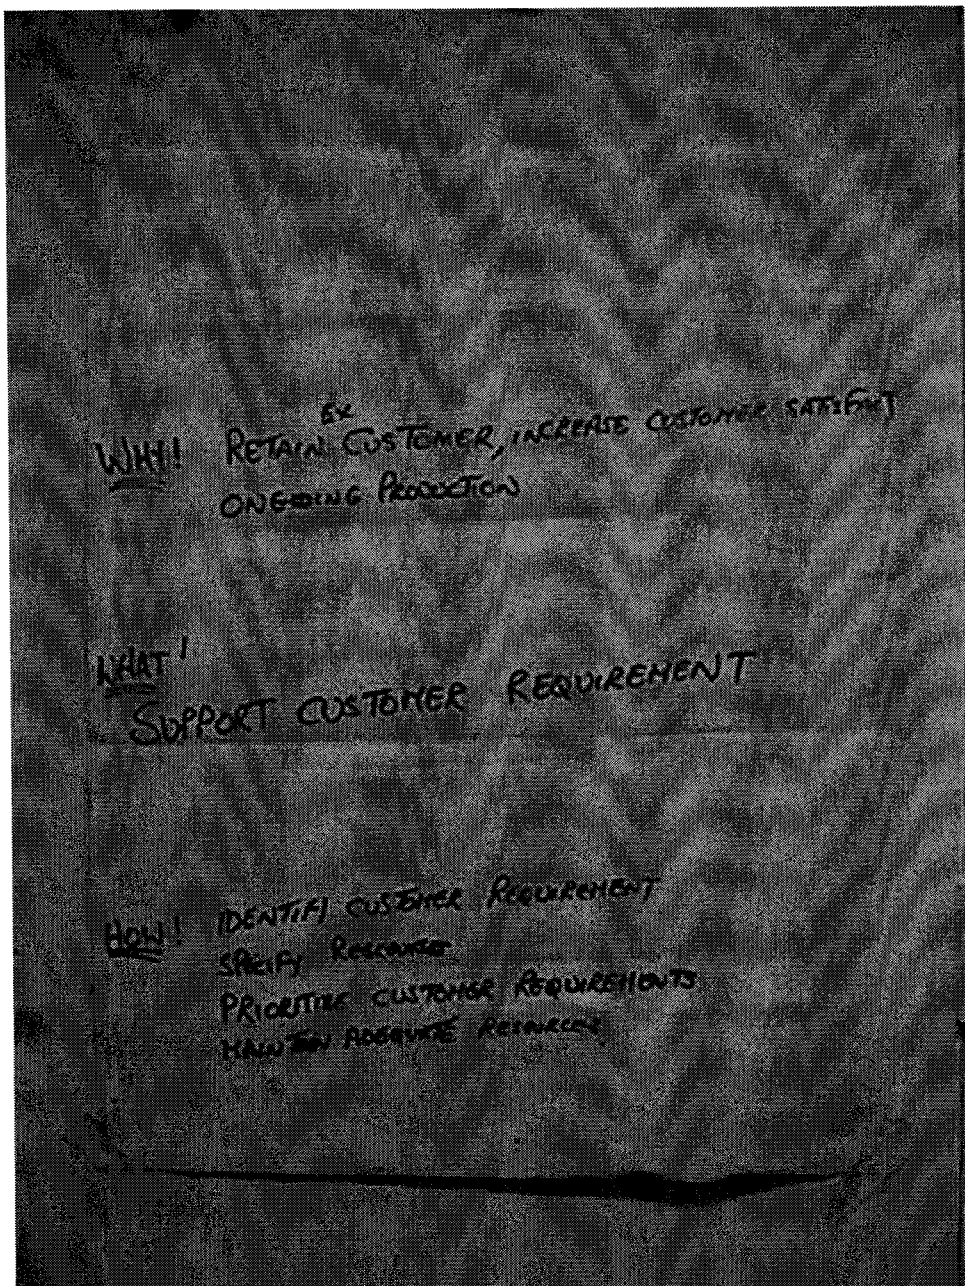 EX
WHY! RETAIN CUSTOMER, INCREASE CUSTOMER SATISFACT
ONGOING PRODUCTION
WHAT!
SUPPORT CUSTOMER REQUIREMENT
HOW! IDENTIFY CUSTOMER REQUIREMENT
SPECIFY RESOURCES
PRIORITIZE CUSTOMER REQUIREMENTS
MAINTAIN ADEQUATE RESOURCES